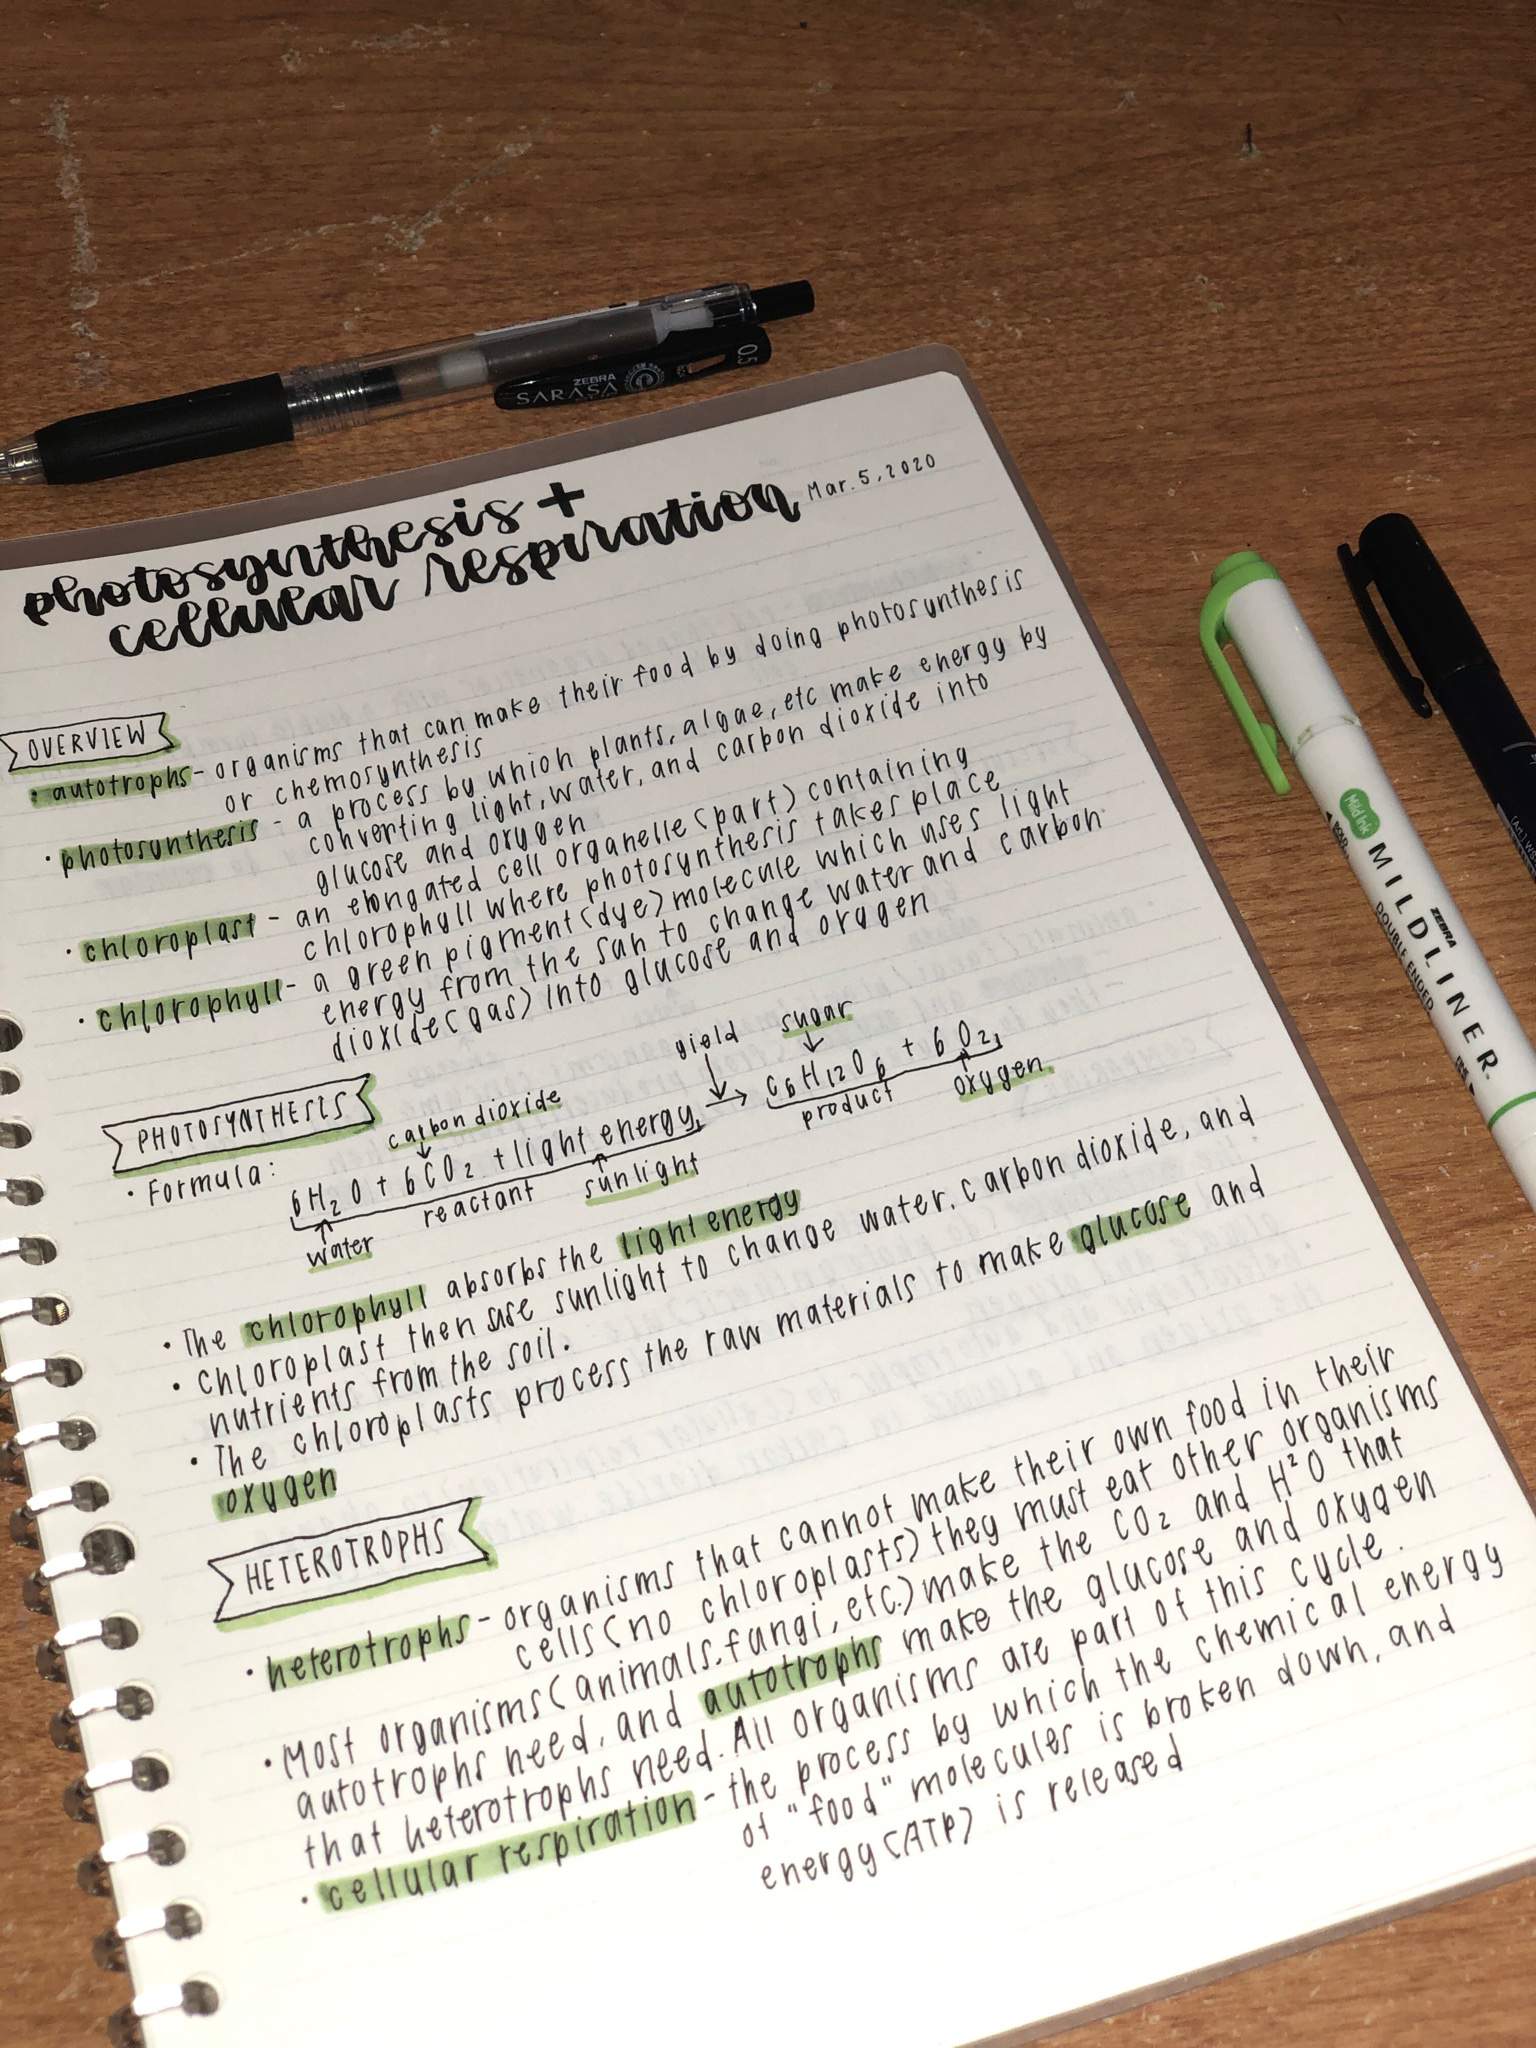 ZEBRA
SARASA
0.5
photosynthesis +
cellular respiration
Mar. 5, 2020
OVERVIEW
• autotrophs - organisms that can make their food by doing photosynthesis
or chemosynthesis
• photosynthesis - a process by which plants, algae, etc make energy by
converting light, water, and carbon dioxide into
glucose and oxygen
• chloroplast - an elongated cell organelle (part) containing
chlorophyll where photosynthesis takes place
• chlorophyll - a green pigment (dye) molecule which uses light
energy from the sun to change water and carbon
dioxide (gas) into glucose and oxygen
PHOTOSYNTHESIS
carbon dioxide
yield
sugar
• Formula: 6H₂O + 6CO₂ + light energy → C₆H₁₂O₆ + 6O₂
water
reactant
sunlight
product
oxygen
• The chlorophyll absorbs the light energy
• Chloroplast then use sunlight to change water, carbon dioxide, and
nutrients from the soil.
• The chloroplasts process the raw materials to make glucose and
oxygen
HETEROTROPHS
• heterotrophs - organisms that cannot make their own food in their
cells (no chloroplasts) they must eat other organisms
• Most organisms (animals, fungi, etc.) make the CO₂ and H²O that
autotrophs need, and autotrophs make the glucose and oxygen
that heterotrophs need. All organisms are part of this cycle.
• cellular respiration - the process by which the chemical energy
of "food" molecules is broken down, and
energy (ATP) is released
Mild Ink
ZEBRA
MILDLINER.
DOUBLE ENDED